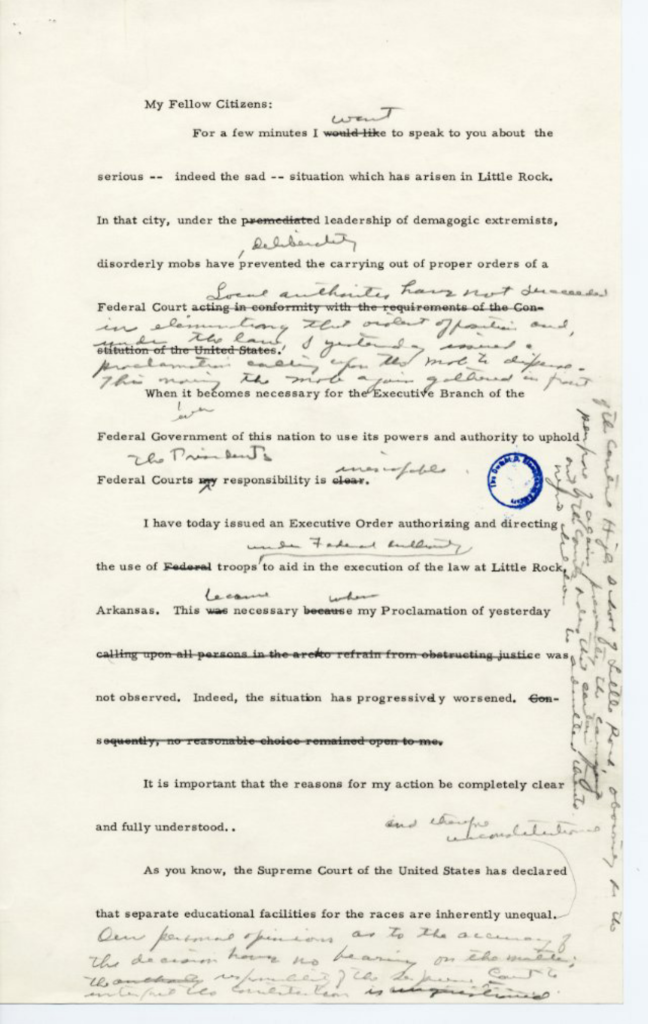 My Fellow Citizens:
want
For a few minutes I would like to speak to you about the
serious -- indeed the sad -- situation which has arisen in Little Rock.
In that city, under the premediated leadership of demagogic extremists,
deliberately
disorderly mobs have prevented the carrying out of proper orders of a
Local authorities have not succeeded
Federal Court acting in conformity with the requirements of the Con-
in eliminating that violent opposition and,
under the law, I yesterday issued a
stitution of the United States.
proclamation calling upon the mob to disperse.
This morning the mob again gathered in front
When it becomes necessary for the Executive Branch of the
ever
Federal Government of this nation to use its powers and authority to uphold
The President's inescapable.
Federal Courts my responsibility is clear.
I have today issued an Executive Order authorizing and directing
under Federal authority
the use of Federal troops to aid in the execution of the law at Little Rock,
became when
Arkansas. This was necessary because my Proclamation of yesterday
calling upon all persons in the area to refrain from obstructing justice was
not observed. Indeed, the situation has progressively worsened. Con-
sequently, no reasonable choice remained open to me.
It is important that the reasons for my action be completely clear
and fully understood..
and therefore
unconstitutional
As you know, the Supreme Court of the United States has declared
that separate educational facilities for the races are inherently unequal.
Our personal opinions as to the accuracy of
the decision have no bearing on the matter;
the authority responsibility of the Supreme Court to
interpret the constitution is unquestioned.
of the Central High School of Little Rock, obviously for the
purpose of again preventing the carrying
out of the Court's order
negro children to